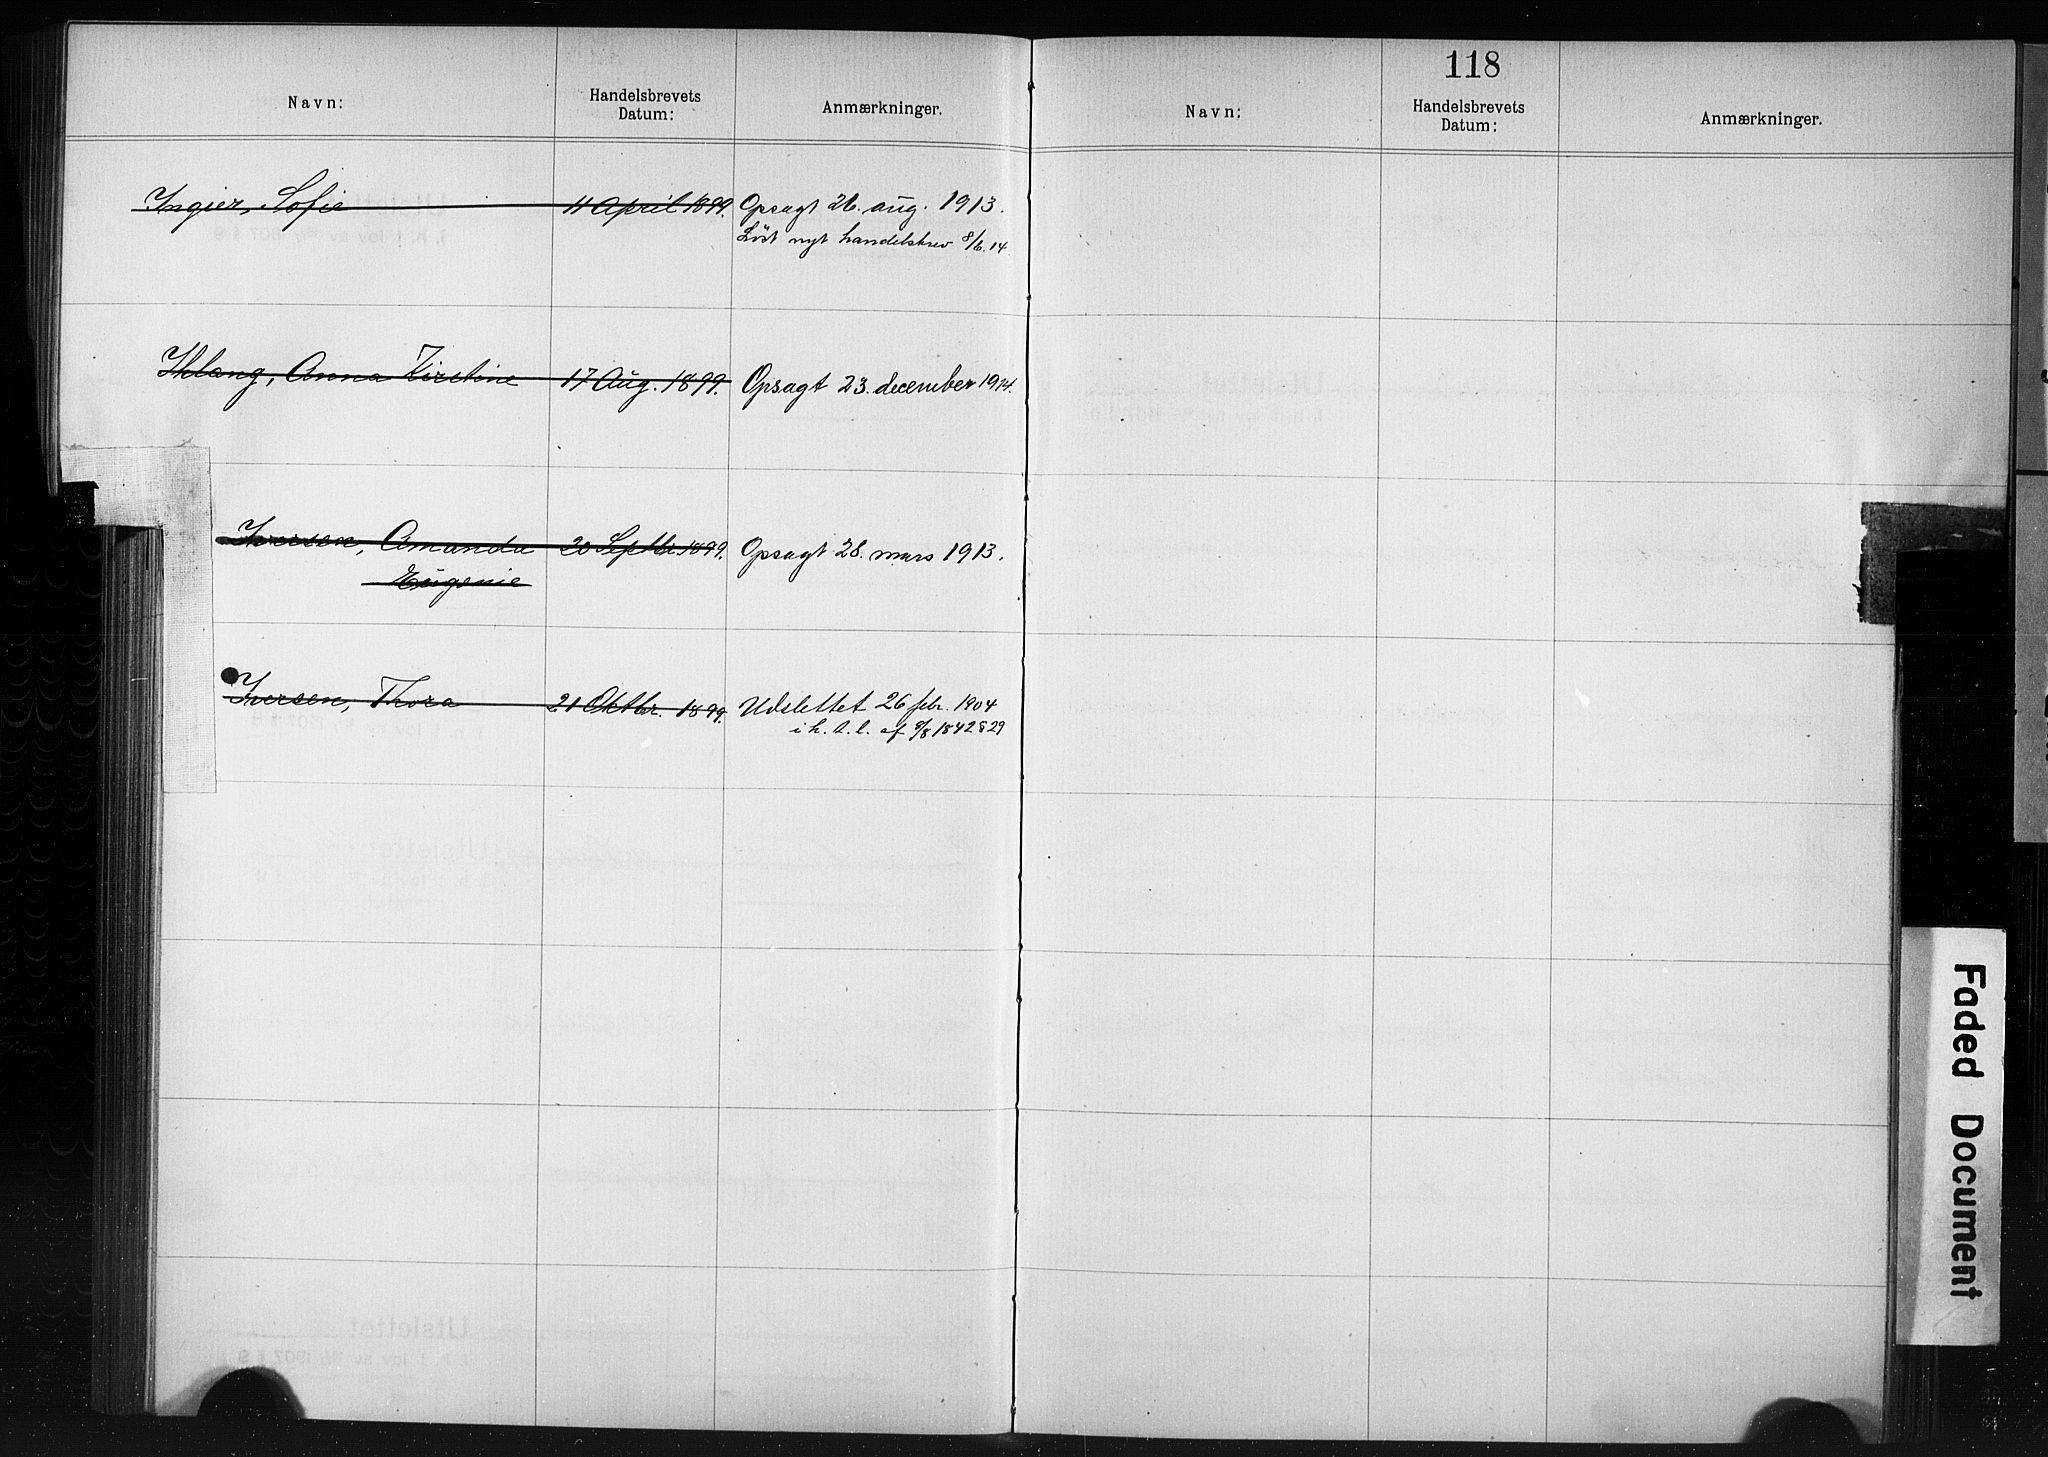 118
Navn:
Handelsbrevets
Datum:
Anmærkninger.
Navn:
Handelsbrevets
Datum:
Anmærkninger.
Ingier, Sofie 11 April 1899. Opsagt 26. aug. 1913.
Løst nyt handelsbrev 8/6.14
Ihlang, Anna Kirstine 17 Aug. 1899. Opsagt 23. december 1914.
Iversen, Amanda 20 Septbr 1899. Opsagt 28. mars 1913.
Eugenie
Iversen, Thora 21 Oktbr. 1899. Udslettet 26 febr. 1904
i h. t. l. af 8/8 1842 § 29
Faded Document